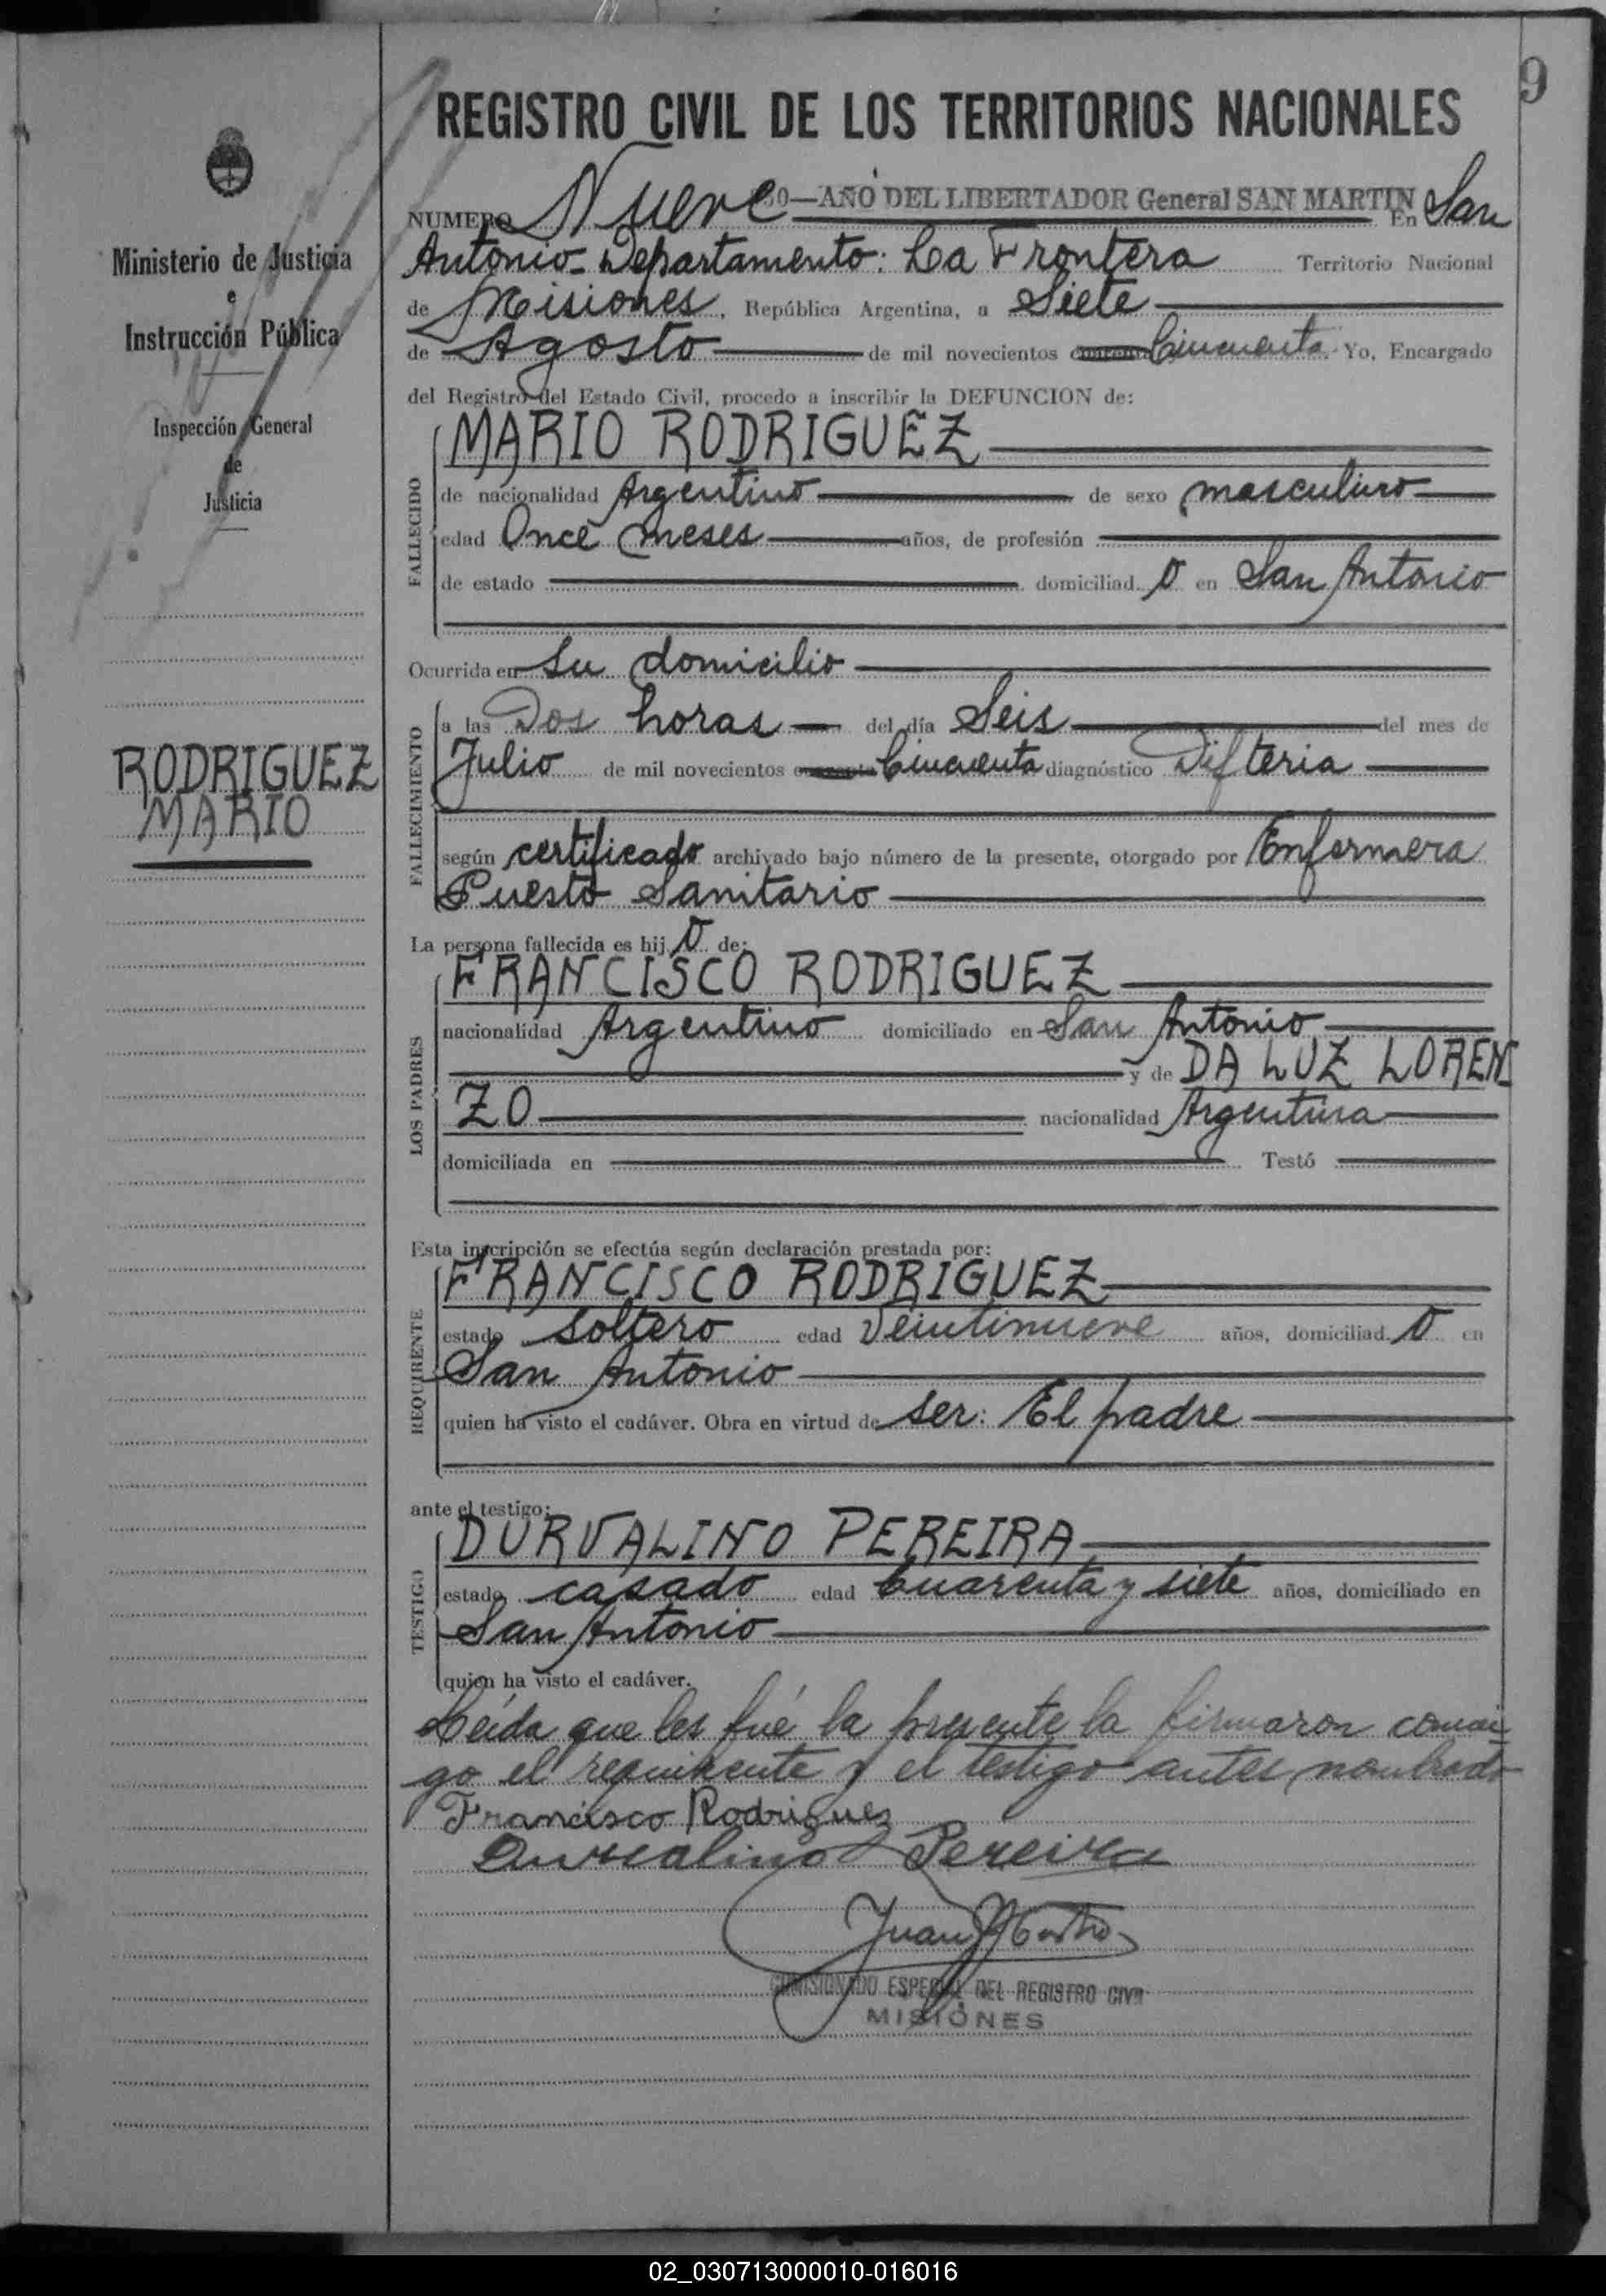 9
REGISTRO CIVIL DE LOS TERRITORIOS NACIONALES
NUMERO Nueve 50—AÑO DEL LIBERTADOR General SAN MARTIN En San
Antonio - Departamento: La Frontera Territorio Nacional
de Misiones, República Argentina, a Siete
de Agosto de mil novecientos Cincuenta. Yo, Encargado
del Registro del Estado Civil, procedo a inscribir la DEFUNCION de:
FALLECIDO
MARIO RODRIGUEZ
de nacionalidad Argentino de sexo masculino
edad Once meses años, de profesión
de estado domiciliad o en San Antonio
Ocurrida en su domicilio
FALLECIMIENTO
a las Dos horas del día Seis del mes de
Julio de mil novecientos Cincuenta diagnóstico Difteria
según certificado archivado bajo número de la presente, otorgado por Enfermera
Puesto Sanitario
La persona fallecida es hij o de:
LOS PADRES
FRANCISCO RODRIGUEZ
nacionalidad Argentino domiciliado en San Antonio
y de DA LUZ LOREN
ZO nacionalidad Argentina
domiciliada en Testó
Esta inscripción se efectúa según declaración prestada por:
REQUIRENTE
FRANCISCO RODRIGUEZ
estado soltero edad Veintinueve años, domiciliad o en
San Antonio
quien ha visto el cadáver. Obra en virtud de ser: El padre
ante el testigo:
TESTIGO
DURVALINO PEREIRA
estado casado edad Cuarenta y siete años, domiciliado en
San Antonio
quien ha visto el cadáver.
Leída que les fué la presente la firmaron conmi
go el requirente y el testigo antes nombrado
Francisco Rodriguez
Durvalino Pereira
Juan
COMISIONADO ESPECIAL DEL REGISTRO CIVIL
MISIONES
Ministerio de Justicia
e
Instrucción Pública
Inspección General
de
Justicia
RODRIGUEZ
MARIO
02_030713000010-016016